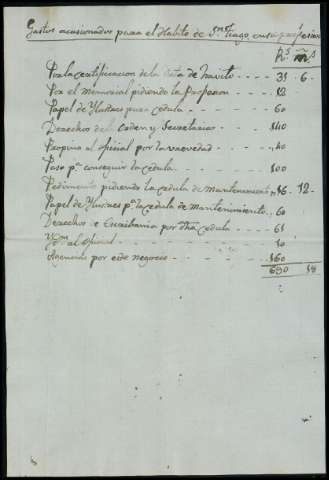 Gastos ocasionados para el Habito de Sntiago, en su profesion
Rs ms
Por la certificacion de la data de havito - - - 31 - 6 -
Por el Memorial pidiendo la Profesion - - 12
Papel de Ylustres para cedula - - - - 60
Derechos del Orden y Secretarios - - - - 140
Propina al oficial por la brevedad - - - 40
Paso pa conseguir la cedula - - - - 100
Pedimento pidiendo la cedula de mantenimiento 16 - 12 -
Papel de Ylustres pa la cedula de mantenimiento 60
Derechos e Escribania por dha cedula - - - 61
Ydm al oficial - - - - 10
Agencia por este negocio - - - - 160
690 18